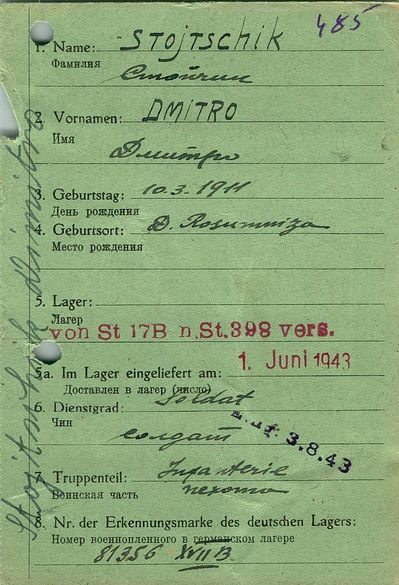 485
1. Name: STOJTSCHIK
Фамилия
Стойчик
2. Vornamen: DMITRO
Имя
Дмитро
3. Geburtstag: 10.3.1911
День рождения
4. Geburtsort: D. Rosumniza
Место рождения
5. Lager:
Лагер
von St 17B n.St.398 vers.
1. Juni 1943
5a. Im Lager eingeliefert am:
Доставлен в лагер (число)
6. Dienstgrad: Soldat
Чин
солдат
3.8.43
7. Truppenteil: Infanterie
Воинская часть пехота
8. Nr. der Erkennungsmarke des deutschen Lagers:
Номер военнопленного в германском лагере
81356 XVII B